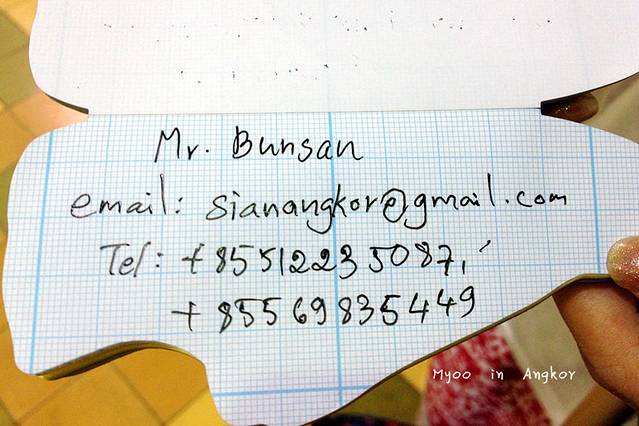 Mr. Bunsan
email: sianangkor@gmail.com
Tel: +85512235087,
+85569835449
Myoo in Angkor